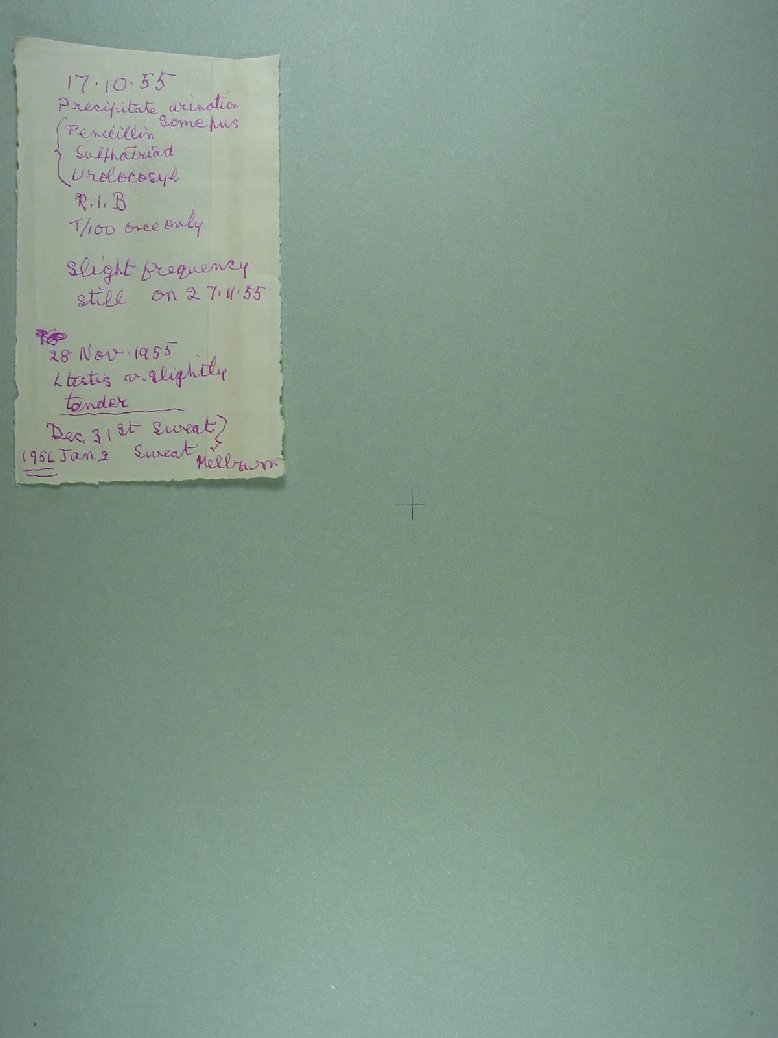 17.10.55
Precipitate urination
Some pus
Penicillin
Sulphatriad
Urolocosyl
R.I.B
T/100 once only
Slight frequency
still on 27.11.55
28 Nov. 1955
L testis v. slightly
tender
Dec 31st Sweat
1956 Jan 2 Sweat